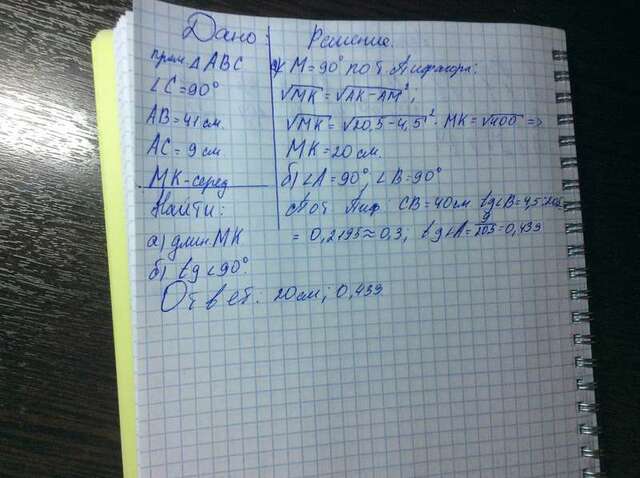 Дано:
прям. △ABC
∠C=90°
AB=41см.
AC=9см
MK-серед
Найти:
а) длин МК
б) tg<90°.
Решение.
M=90° по т. Пифагора:
√MK=√AK-AM²;
√MK=√20,5-4,5² · MK=√400 =>
MK=20см.
б) ∠A=90°, ∠B=90°
По т. Пиф: CB=40см tg∠B=4,5:
= 0,2195≈0,3; tg∠A= =0,439
Ответ: 20см; 0,439